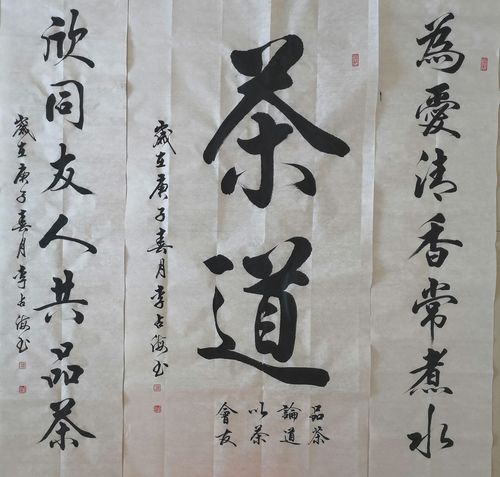 為愛清香常煮水
茶道
品茶
論道
以茶
會友
歲在庚子春月李占海书
欣同友人共品茶
歲在庚子春月李占海书